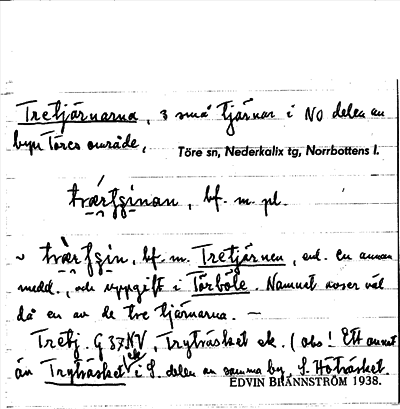 Tretjärnarna, 3 små tjärnar i NO delen av
byn Töres område,
Töre sn, Nederkalix tg, Norrbottens l.
bf. m. pl.
~ bf. m. Tretjärnen, enl. en annan
medd., och uppgift i Törböle. Namnet avser väl
då en av de tre tjärnarna. —
Tretj. G 37 NV, Trytträsket ek. (obs! Ett annat
än Trytträsket ek i S. delen av samma by, S. Hötträsket.
EDVIN BRÄNNSTRÖM 1938.